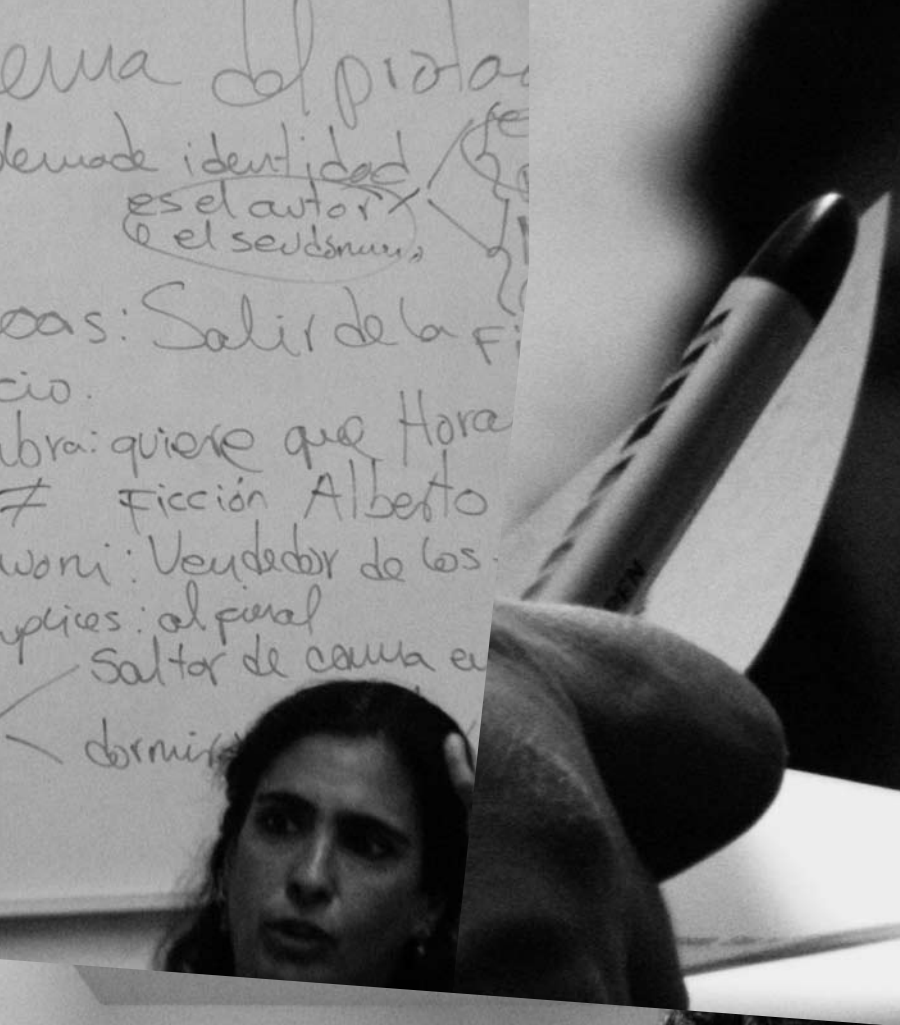 ema del prota
dema de identidad
es el autor
o el seudónimo
oas: Salir de la Fi
cio.
abra: quiere que Hora
≠ Ficción Alberto
woni: Vendedor de los
uplices: al final
Saltar de cama en
dormir
PEN